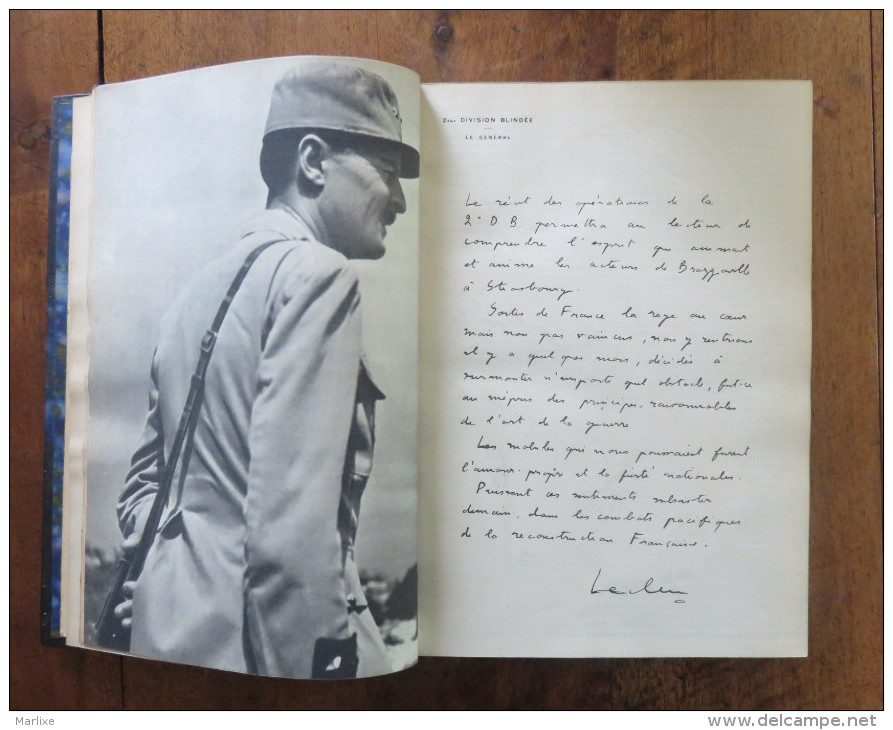 2ème DIVISION BLINDÉE
LE GÉNÉRAL
Le récit des opérations de la
2° D. B. permettra au lecteur de
comprendre l'esprit qui animait
et anime les acteurs de Brazzaville
à Strasbourg.
Sortis de France la rage au cœur
mais non pas vaincus, nous y rentrions
il y a quelques mois, décidés à
surmonter n'importe quel obstacle, fut-ce
au mépris des principes raisonnables
de l'art de la guerre
Les mobiles qui nous poussaient furent
l'amour-propre et la fierté nationales.
Puissent ces sentiments subsister
demain, dans les combats pacifiques
de la reconstruction Française.
Leclerc
Marlixe
www.delcampe.net